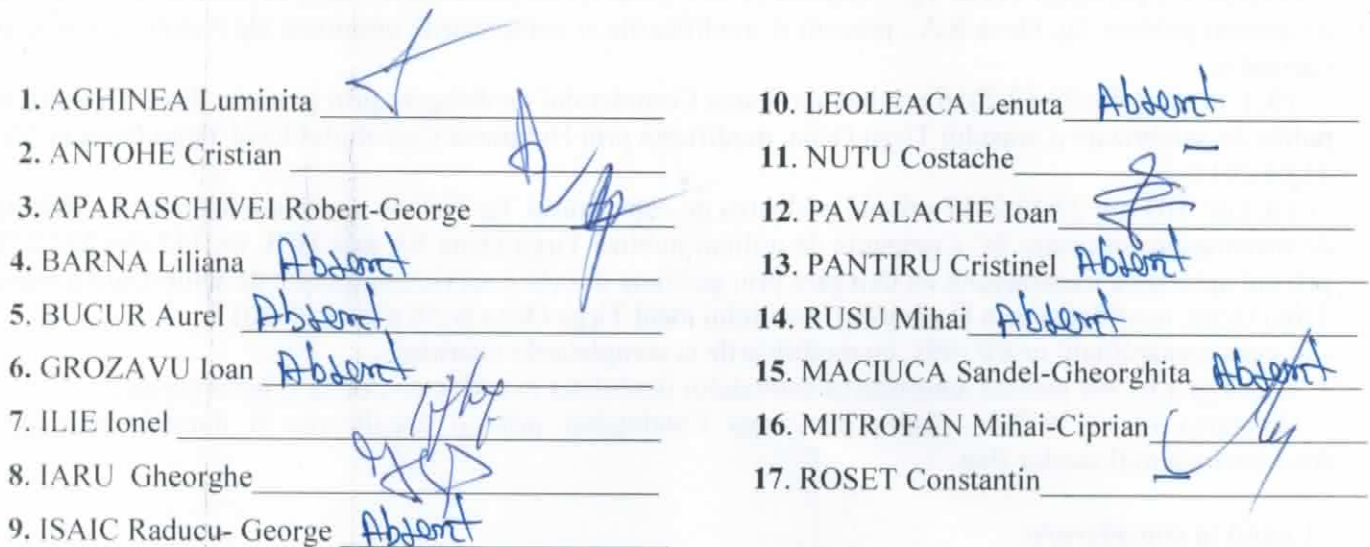 1. AGHINEA Luminita
2. ANTOHE Cristian
3. APARASCHIVEI Robert-George
4. BARNA Liliana Absent
5. BUCUR Aurel Absent
6. GROZAVU Ioan Absent
7. ILIE Ionel
8. IARU Gheorghe
9. ISAIC Raducu- George Absent
10. LEOLEACA Lenuta Absent
11. NUTU Costache
12. PAVALACHE Ioan
13. PANTIRU Cristinel Absent
14. RUSU Mihai Absent
15. MACIUCA Sandel-Gheorghita Absent
16. MITROFAN Mihai-Ciprian
17. ROSET Constantin